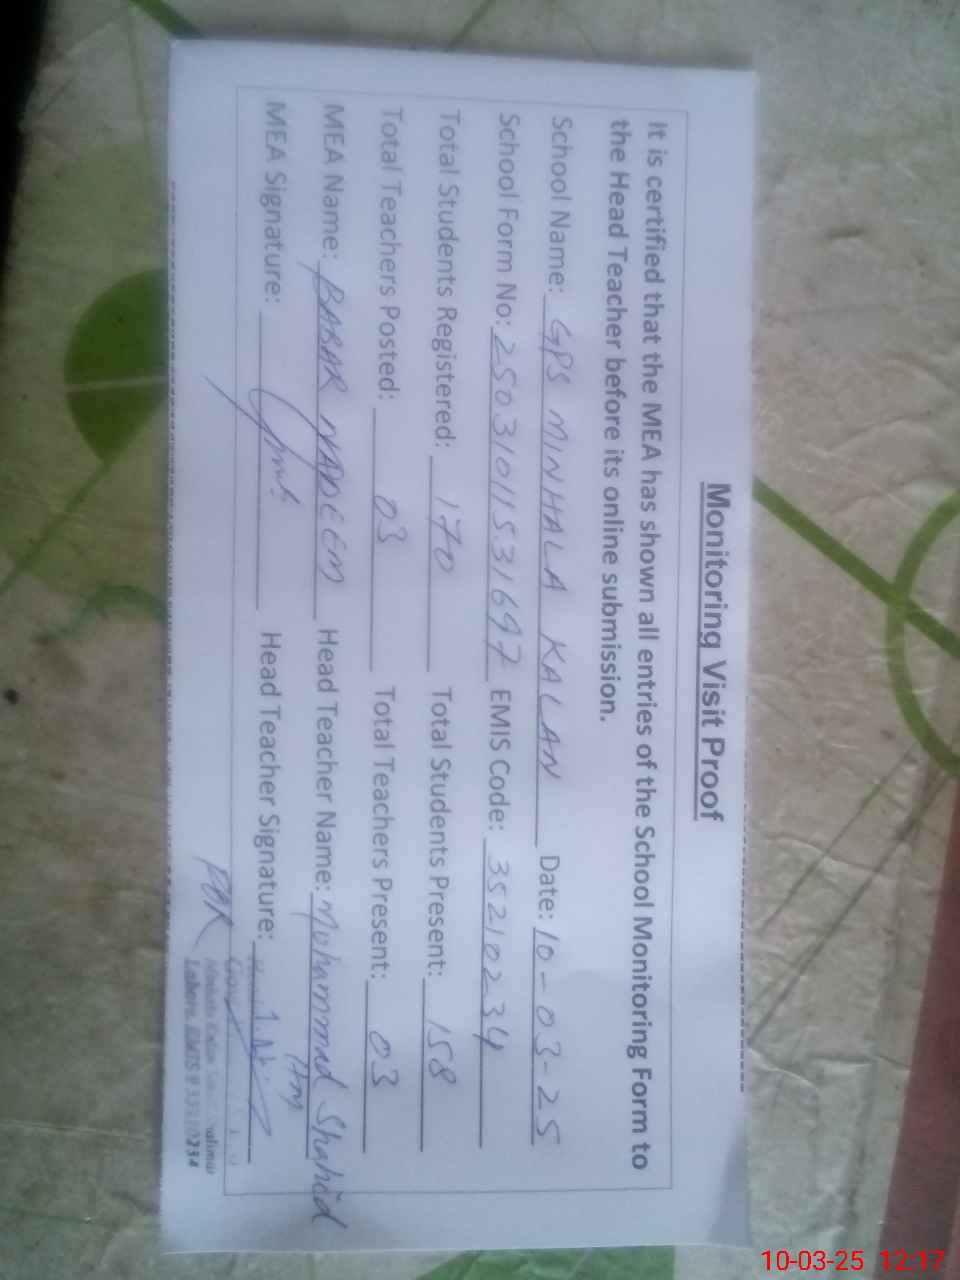 Monitoring Visit Proof
It is certified that the MEA has shown all entries of the School Monitoring Form to
the Head Teacher before its online submission.
School Name: GPS MINHALA KALAN Date: 10-03-25
School Form No: 25031011531697 EMIS Code: 35210234
Total Students Registered: 170 Total Students Present: 158
Total Teachers Posted: 03 Total Teachers Present: 03
MEA Name: BABAR NADEEM Head Teacher Name: Mohammad Shahid
HM
MEA Signature: Head Teacher Signature:
Lahore EMIS # 35210234
10-03-25 12:17